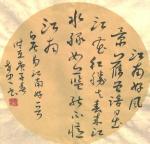 江南好風
景舊曾諳日出
江花紅勝火春來江
水綠如藍能不憶
江南
白居易江南好一首